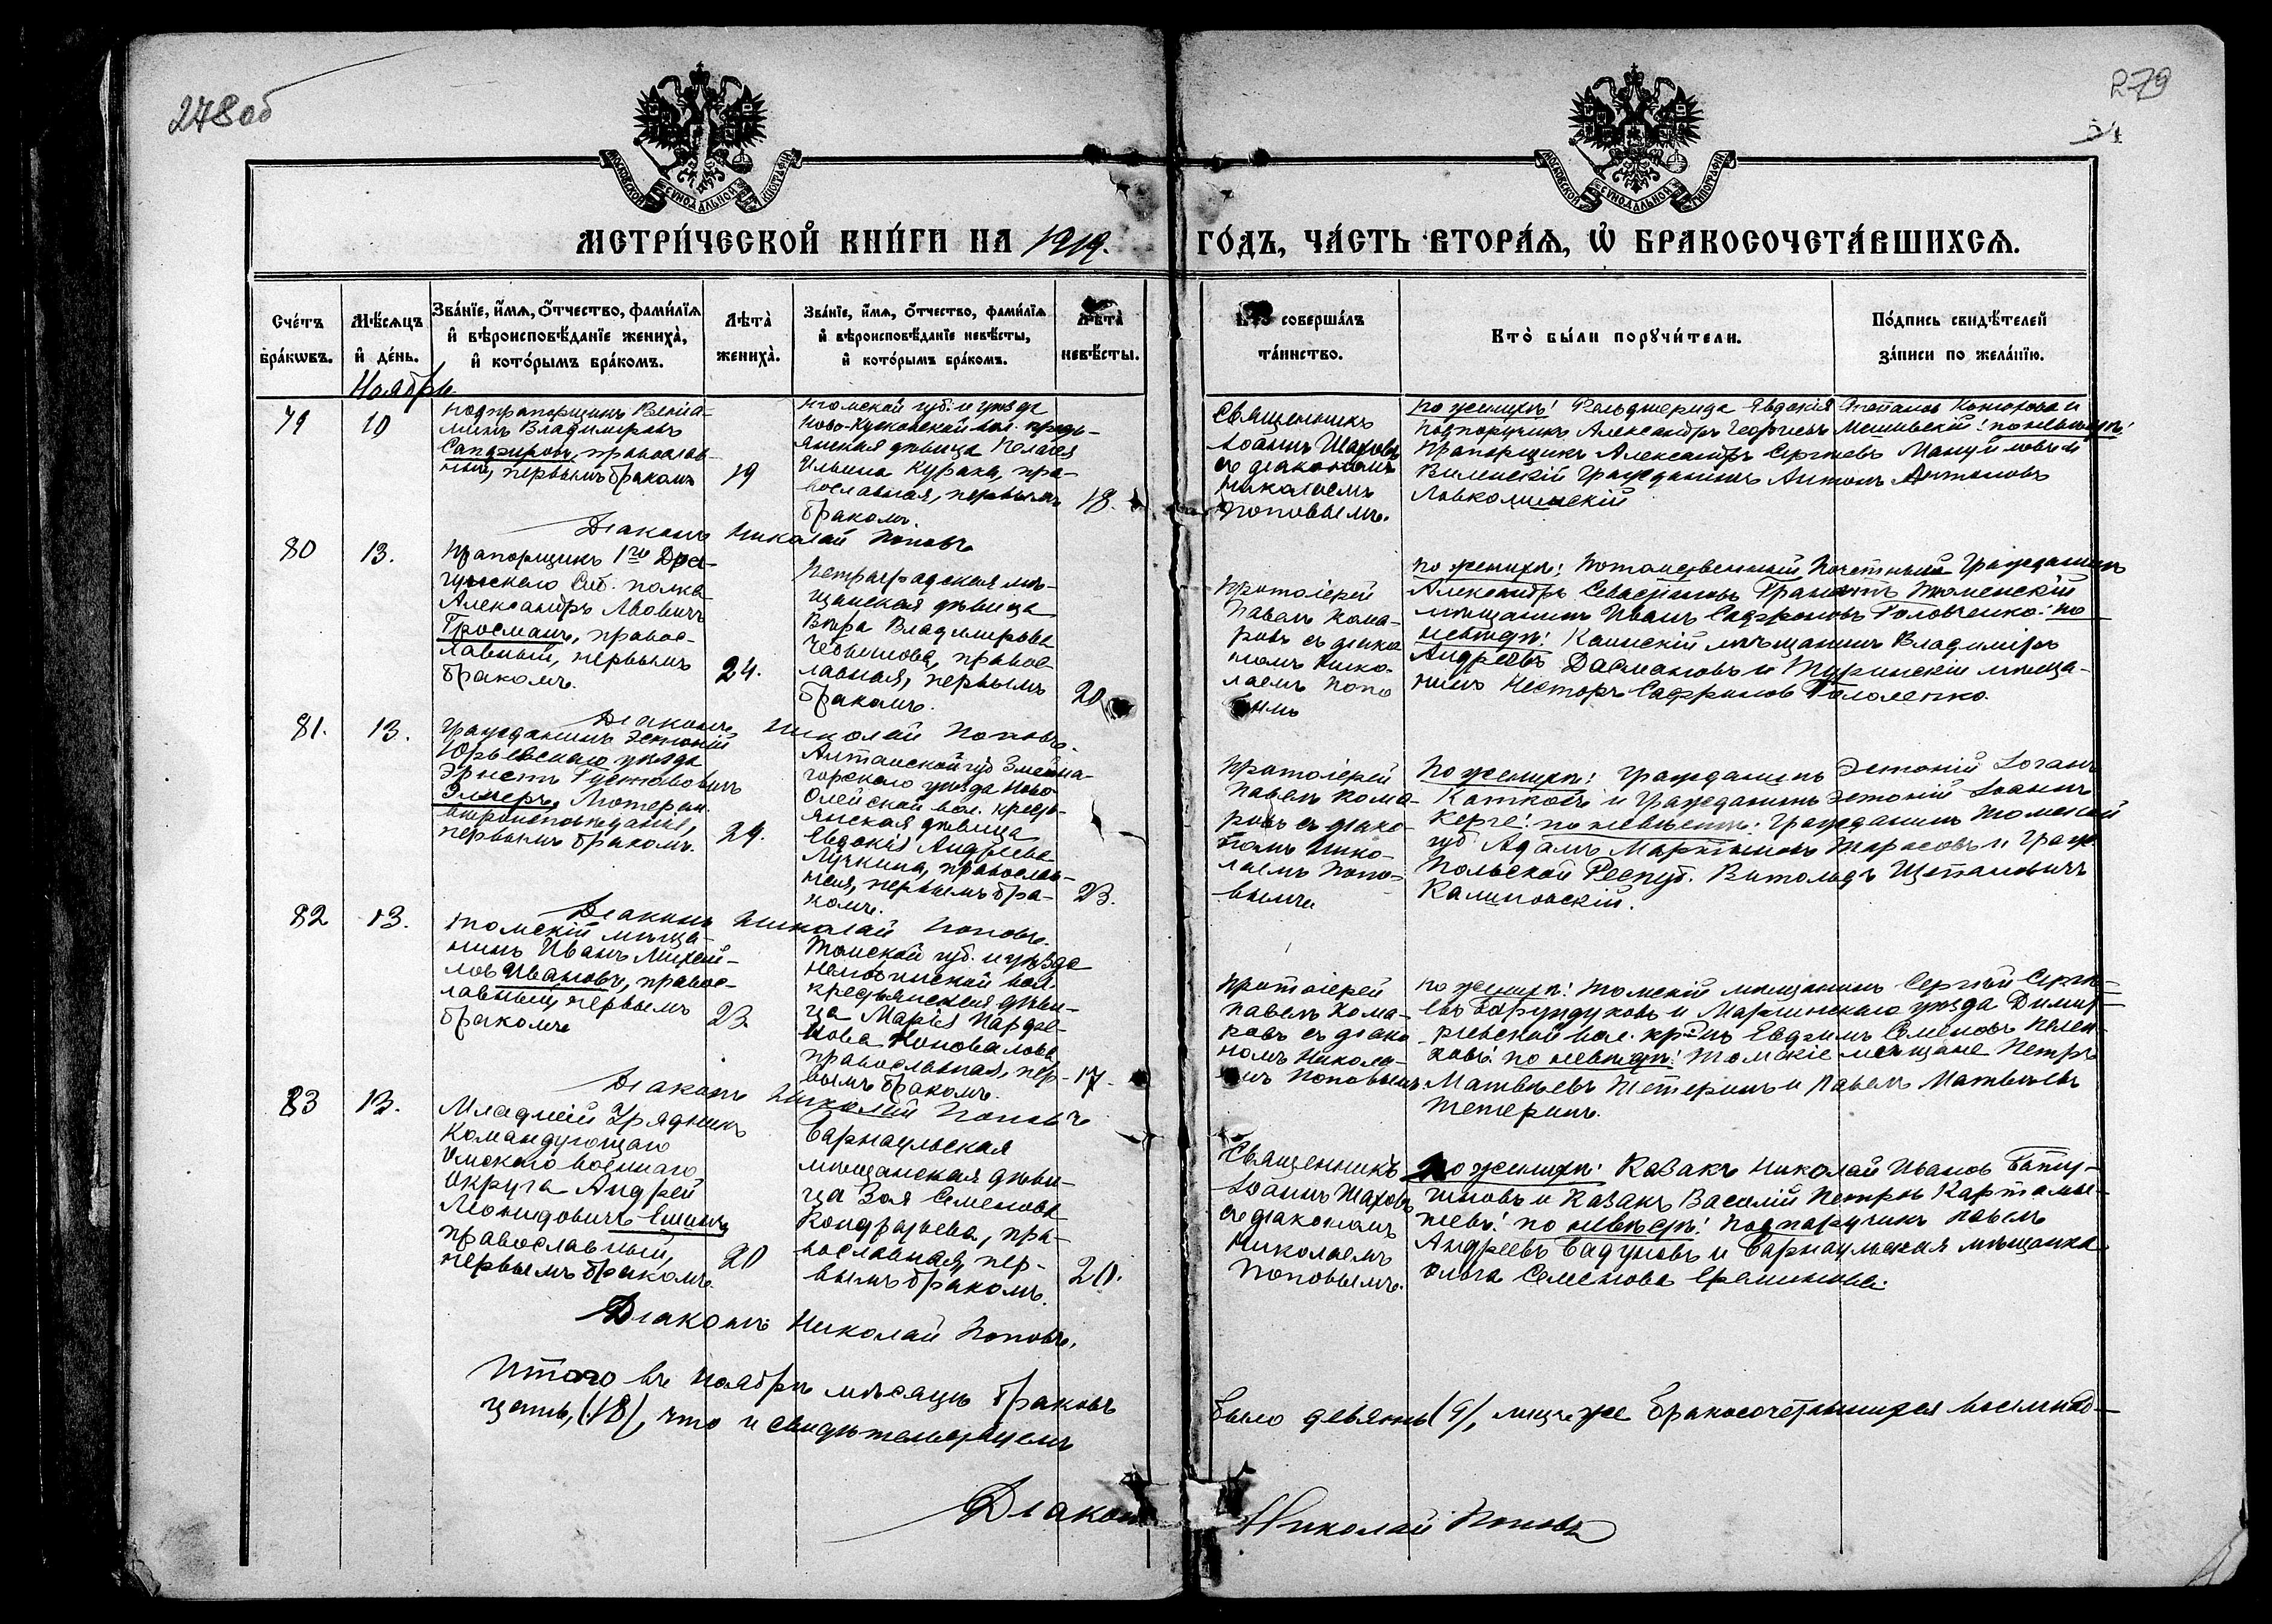 278 об
279
54
МОСКОВСКОЙ СѴНОДАЛЬНОЙ ТИПОГРАФІИ
МОСКОВСКОЙ СѴНОДАЛЬНОЙ ТИПОГРАФІИ
МЕТРИ́ЧЕСКОЙ КНИ́ГИ НА 1919.
ГО́ДЪ, ЧА́СТЬ ВТОРА́Ѧ, Ѽ БРАКОСОЧЕТА́ВШИХСѦ.
Сче́тъ бра́кѡвъ.
Мѣ́сѧцъ и҆ де́нь.
Зва́нїе, и҆́мѧ, ѻ҆́тчество, фами́лїѧ и҆ вѣроисповѣ́данїе жениха̀, и҆ кото́рымъ бра́комъ.
Лѣ́та̀ жениха̀.
Зва́нїе, и҆́мѧ, ѻ҆́тчество, фами́лїѧ и҆ вѣроисповѣ́данїе невѣ́сты, и҆ кото́рымъ бра́комъ.
Лѣ́та̀ невѣ́сты.
Кто̀ соверша́лъ та́инство.
Кто̀ бы́ли порꙋчи́тели.
По́дпись свидѣ́телей за́писи по жела́нїю.
Ноябрь
79
10
Подпрапорщикъ Веніа-
минъ Владиміровъ
Сапфировъ, православ-
ный, первымъ бракомъ
19
Томской губ. и уѣзда
Ново-Кусковской вол. кресть-
янская дѣвица Пелагея
Ильина Курака, пра-
вославная, первымъ
бракомъ.
18.
Священникъ
Іоаннъ Шаховъ
съ діакономъ
Николаемъ
Поповымъ.
По женихѣ: Фельдшерица Евдокія Степанова Конюхова и
подпоручикъ Александръ Георгіевъ по невѣстѣ:
Прапорщикъ Александръ Сергѣевъ Мануйловъ и
Виленскій гражданинъ Антонъ Антоновъ
Діаконъ Николай Поповъ
80
13.
Прапорщикъ 1го Дра-
гунскаго Сиб. полка
Александръ Львовичъ
Гросманъ, правос-
лавный, первымъ
бракомъ.
24.
Петроградская мѣ-
щанская дѣвица
Вѣра Владимірова
правос-
лавная, первымъ
бракомъ.
20
Протоіерей
Павелъ Кома-
ровъ съ діако-
номъ Нико-
лаемъ Попо
вымъ
По женихѣ: Потомственный Почетный Гражданинъ
Александръ Севастіановъ Тюменскій
мѣщанинъ Иванъ Сафроновъ Головченко: по
невѣстѣ: Каинскій мѣщанинъ Владиміръ
Андреевъ Дасмановъ и Туринскій мѣща-
нинъ Несторъ Сафроновъ
Діаконъ Николай Поповъ.
81.
13.
Гражданинъ Эстоніи
Юрьевскаго уѣзда
Эрнестъ Густавовичъ
Элмеръ, Лютеран.
вѣроисповѣданія,
первымъ бракомъ.
29.
Алтайской губ Змеина-
горскаго уѣзда Ново-
Олейской вол. кресть-
янская дѣвица
Евдокія Андреева
Лучкина, православ-
ная, первымъ бра-
комъ.
23.
Протоіерей
Павелъ Кома-
ровъ съ діако-
номъ Нико-
лаемъ Попо-
вымъ
По женихѣ: Гражданинъ Эстоніи Іоганъ
и Гражданинъ Эстоніи Іоаннъ
Керге: по невѣстѣ: Гражданинъ Томской
губ Адамъ Мартыновъ Тарасовъ и Граж.
Польской Респуб. Витольдъ Щепановичъ
Калиновскій.
Діаконъ Николай Поповъ.
82
13.
Томскій мѣща-
нинъ Иванъ Михай-
ловъ Ивановъ, правос-
лавный, первымъ
бракомъ
23.
Томской губ. и уѣзда
Нелюбинской вол.
крестьянская дѣви-
ца Марія Парфе-
нова Коновалова,
православная, пер-
вымъ бракомъ.
17.
Протоіерей
Павелъ Кома-
ровъ съ діако
номъ Никола-
емъ Поповымъ.
По женихѣ: Томскій мѣщанинъ Сергѣй Серге-
евъ Барундуковъ и Маріинскаго уѣзда Дмит-
ріевской вол. кр-нъ Ефимъ Семеновъ
по невѣстѣ: Томскіе мѣщане Петръ
Матвѣевъ Тетеринъ и Павелъ Матвѣевъ
Тетеринъ.
Діаконъ Николай Поповъ
83
13.
Младшій Урядникъ
Командующаго
Омскаго военнаго
Округа Андрей
Леонидовичъ Ешинъ,
православный,
первымъ бракомъ.
20
Барнаульская
мѣщанская дѣви-
ца Зоя Семенова
Кондратьева, пра-
вославная, пер-
вымъ бракомъ.
20.
Священникъ
Іоаннъ Шаховъ
съ діакономъ
Николаемъ
Поповымъ.
По женихѣ: Казакъ Николай Ивановъ
и казакъ Василій Петровъ Картамы-
шевъ: по невѣстѣ: Подпоручикъ Павелъ
Андреевъ Бадуновъ и Барнаульская мѣщанка
Ольга Семенова
Діаконъ Николай Поповъ.
Итого въ ноябрѣ мѣсяцѣ браковъ было девять (9), лицъ же бракосочетавшихся восемнад-
цать, (18), что и свидѣтельствуемъ
Діаконъ Николай Поповъ